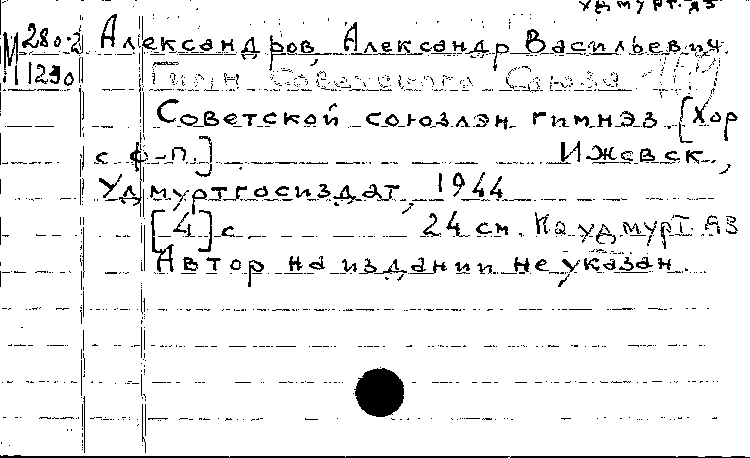 удмурт. яз
М 280-2 Александров, Александр Васильевич.
1230 Гимн Советского Союза
Советской союзлэн гимнэз [Хор
с ф-п.] Ижевск,
Удмуртгосиздат, 1944
[4] с 24 см. На удмурт. яз
Автор на издании не указан.